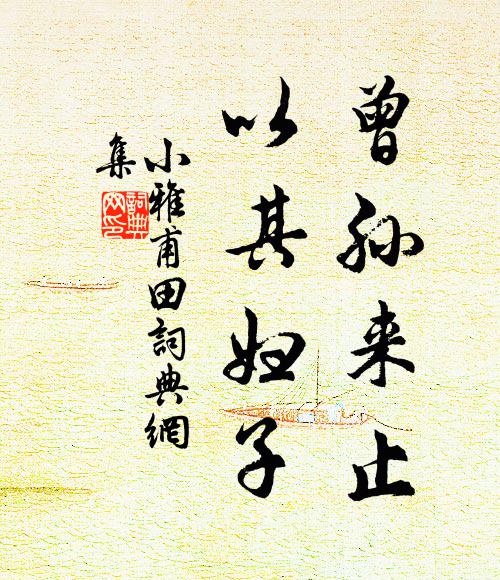 曾孙来止
以其妇子
小雅甫田詞典網
集
詞典
网印